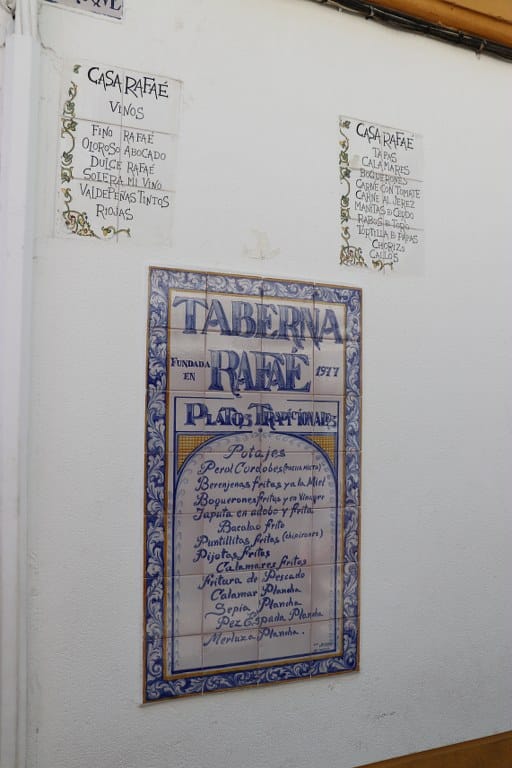 CASA RAFAÉ
VINOS
FINO RAFAÉ
OLOROSO ABOCADO
DULCE RAFAÉ
SOLERA MI VINO
VALDEPEÑAS TINTOS
RIOJAS
CASA RAFAE
TAPAS
CALAMARES
BOQUERONES
CARNE CON TOMATE
CARNE AL JEREZ
MANITAS D CERDO
RABOS D TORO
TORTILLA D PAPAS
CHORIZO
CALLOS
TABERNA
FUNDADA EN RAFAÉ 1977
PLATOS TRADICIONALES
Potajes
Perol Cordobés
Berenjenas fritas y a la Miel
Boquerones fritos y en Vinagre
Japuta en adobo y frita
Bacalao frito
Puntillitas fritas (chipirones)
Pijotas fritas
Calamares fritos
fritura de Pescado
Calamar Plancha
Sepia Plancha
Pez Espada Plancha
Merluza Plancha.